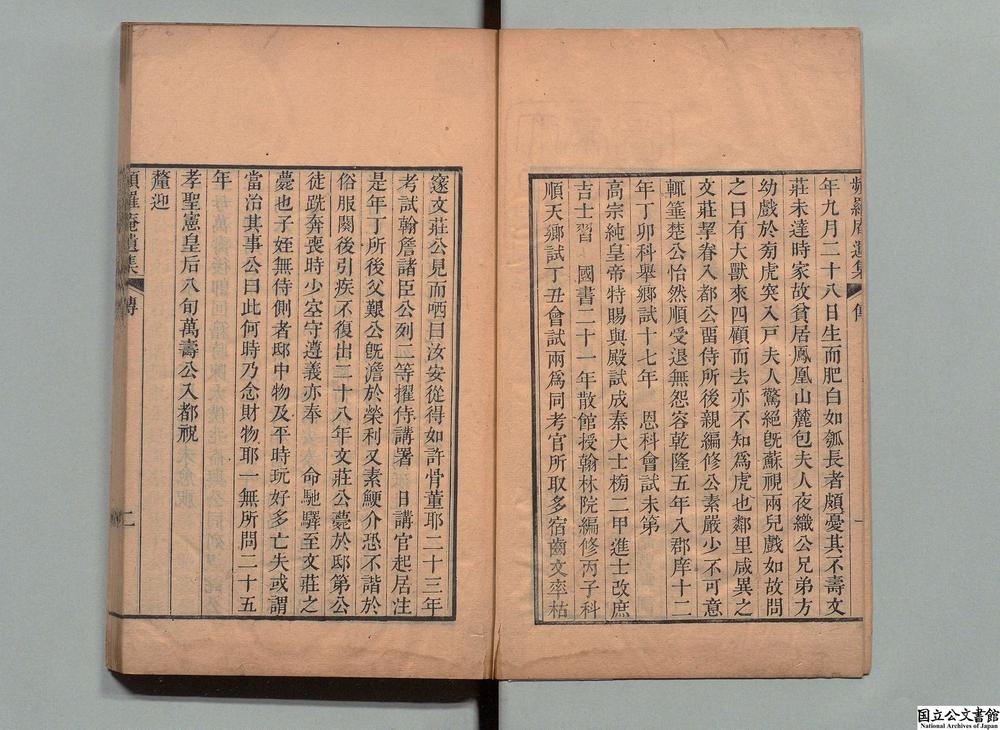 頻羅庵遺集 傳 一
年九月二十八日生而肥白如瓠長者頗憂其不壽文
莊未達時家故貧居鳳凰山麓包夫人夜織公兄弟方
幼戲於旁虎突入戶夫人驚絕旣蘇視兩兒戲如故問
之曰有大獸來四顧而去亦不知爲虎也鄰里咸異之
文莊挈眷入都公畱侍所後親編修公素嚴少不可意
輒箠楚公怡然順受退無怨容乾隆五年入郡庠十二
年丁卯科舉鄉試十七年 恩科會試未第
高宗純皇帝特賜與殿試成秦大士榜二甲進士改庶
吉士習 國書二十一年散館授翰林院編修丙子科
順天鄉試丁丑會試兩爲同考官所取多宿齒文率枯
窔文莊公見而哂曰汝安從得如許骨董耶二十三年
考試翰詹諸臣公列二等擢侍講署 日講官起居注
是年丁所後父艱公旣澹於榮利又素鯁介恐不諧於
俗服闋後引疾不復出二十八年文莊公薨於邸第公
徒跣奔喪時少宰守遵義亦奉 命馳驛至文莊之
薨也子姪無侍側者邸中物及平時玩好多亡失或謂
當治其事公曰此何時乃念財物耶一無所問二十五
年
孝聖憲皇后八旬萬壽公入都祝
釐迎
頻羅庵遺集 傳 二
国立公文書館
National Archives of Japan